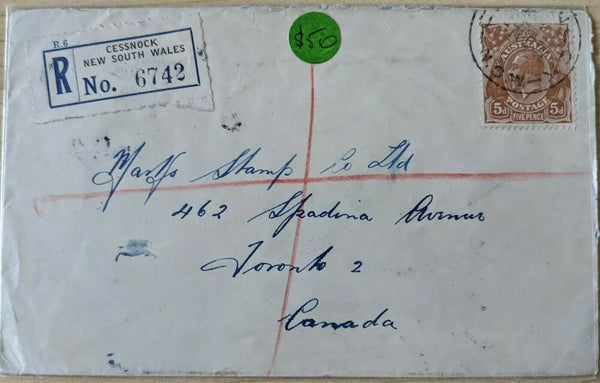 R6
CESSNOCK
NEW SOUTH WALES
R No. 6742
$50
AUSTRALIA
5d POSTAGE 5d
FIVE PENCE
Marks Stamp Co Ltd
462 Spadina Avenue
Toronto 2
Canada